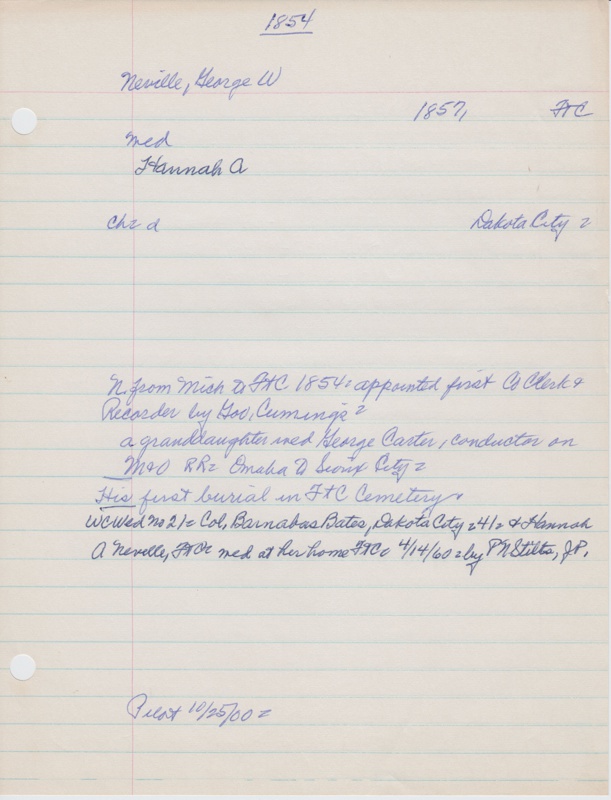 1854
Neville, George W
1857, FtC
med
Hannah A
ch= d Dakota City =
N. from Mich to FtC. 1854= appointed first Co Clerk &
Recorder by Gov. Cumings =
a granddaughter med George Carter, conductor on
M&O RR= Omaha to Sioux City =
His first burial in FtC Cemetery
WCWed No 21= Col, Barnabas Bates, Dakota City = 41= & Hannah
A Neville, FtC= med at her home FtC 4/14/60 = by P N Stilts, J.P.
Pilot 10/25/00 =